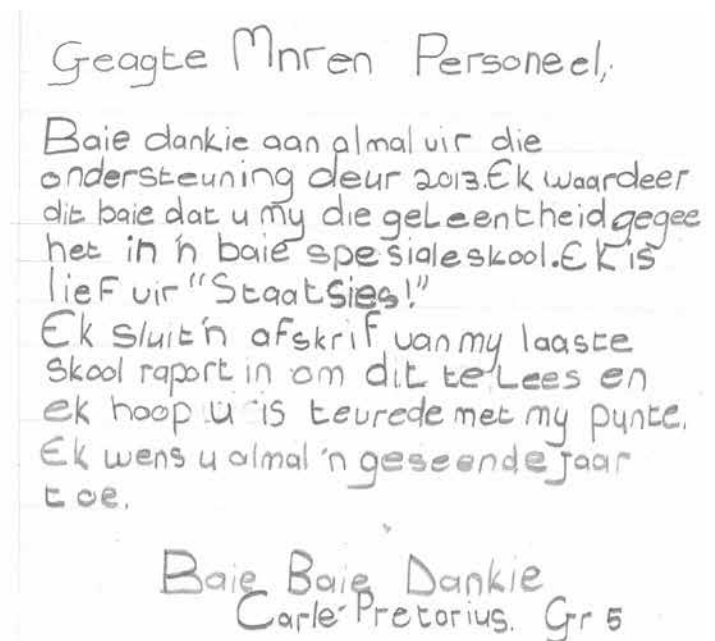 Geagte Mnr en Personeel,
Baie dankie aan almal vir die
ondersteuning deur 2013. Ek waardeer
dit baie dat u my die geleentheid gegee
het in 'n baie spesiale skool. Ek is
lief vir "Staatsies!"
Ek sluit 'n afskrif van my laaste
skool raport in om dit te lees en
ek hoop u is tevrede met my punte.
Ek wens u almal 'n geseende jaar
toe.
Baie Baie Dankie
Carle Pretorius. Gr 5